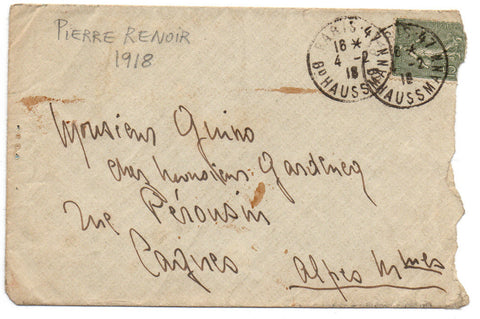 PIERRE RENOIR
1918
PARIS·47
16*
4-2
18
Bd HAUSSMANN
Monsieur Guino
chez Monsieur Gardencq
rue Pérousin
Cagnes
Alpes Mmes